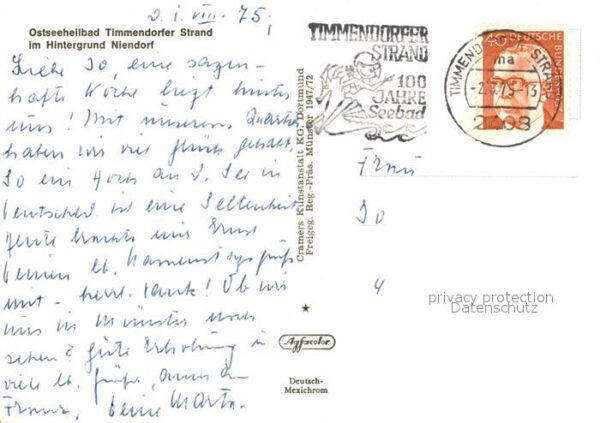 2. i. VIII. 75;
Ostseeheilbad Timmendorfer Strand
im Hintergrund Niendorf
Liebe Jo, eine sagen-
hafte Woche liegt hinter
uns! Mit unserem Quartier
haben wir viel Glück gehabt.
So ein Hoch an d. See in
Deutschld. ist eine Seltenheit
Heute brachte uns Ernst
Deinen lb. Namenstagsgruß
mit - herzl. Dank! Ob wir
uns in Münster noch
sehen? Gute Erholung u.
viele lb. Grüße, auch an
Franz, Deine Marta.
Cramers Kunstanstalt KG, Dortmund
Freigeg. Reg.-Präs. Münster 1947/72
Agfacolor
Deutsch-
Mexichrom
TIMMENDORFER
STRAND
100
JAHRE
Seebad
40 DEUTSCHE BUNDES
TIMMENDORFER STRAND
ma
-2.8.75-13
2408
Frau
Jo
4
privacy protection
Datenschutz